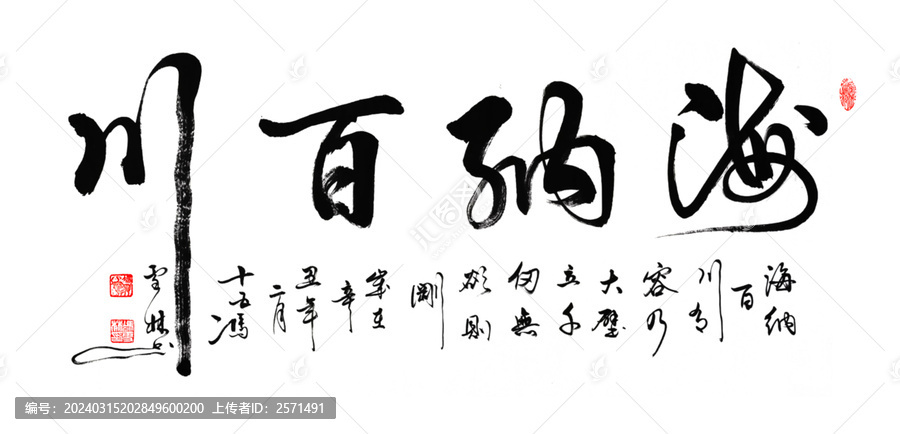 海納百川
海納
百
川有
容乃
大壁
立千
仞無
欲則
剛
歲在
辛
丑年
二月
十五馮
雪
编号：20240315202849600200 上传者ID：2571491